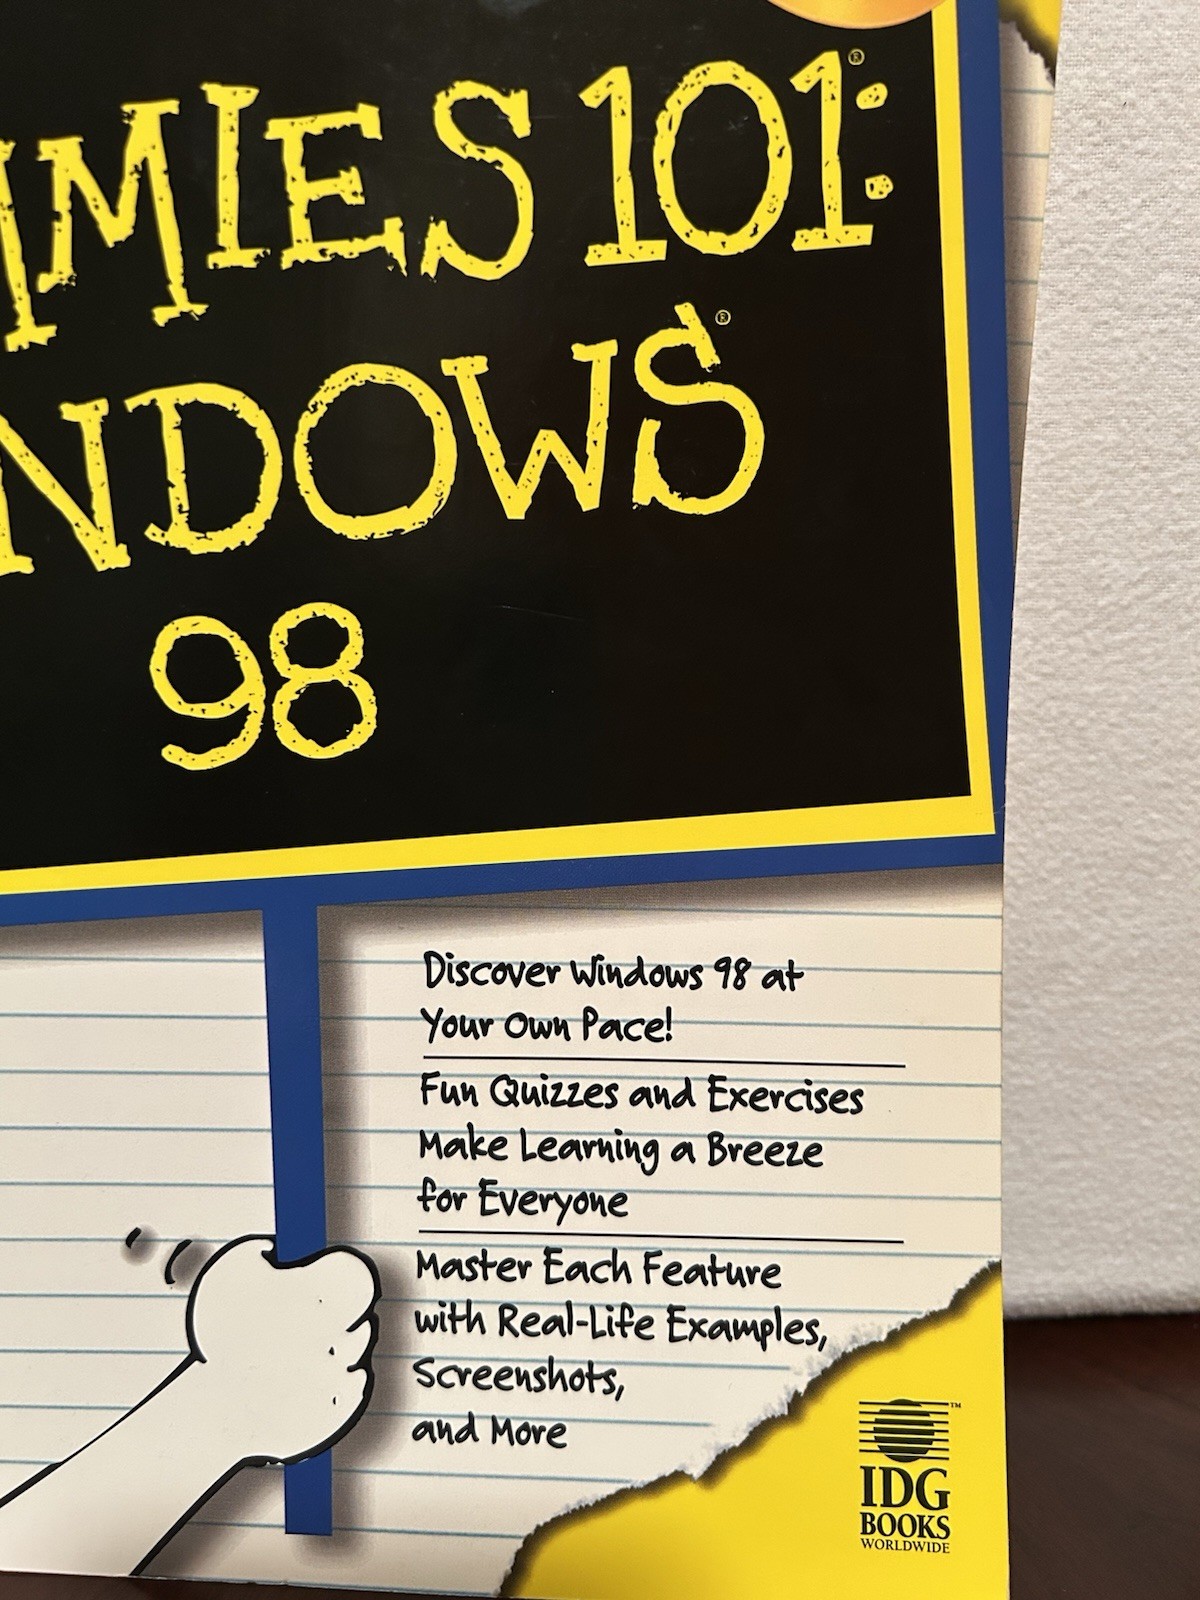 MMIES 101®:
NDOWS®
98
Discover Windows 98 at
Your Own Pace!
Fun Quizzes and Exercises
Make Learning a Breeze
for Everyone
Master Each Feature
with Real-Life Examples,
Screenshots,
and More
™
IDG
BOOKS
WORLDWIDE